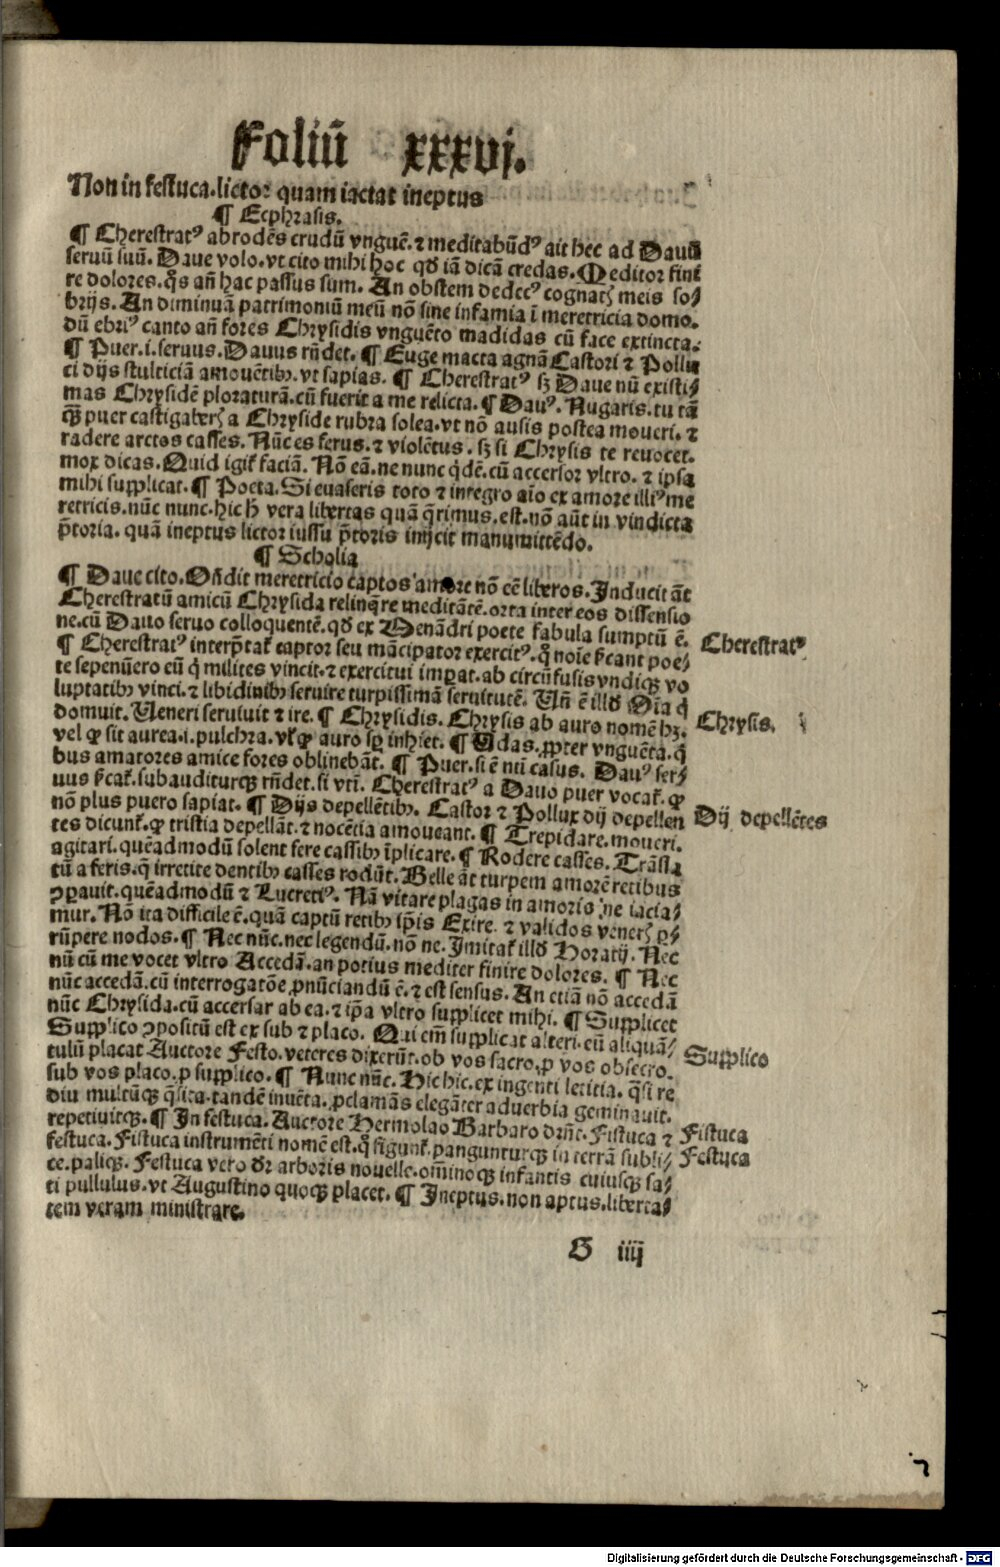 Foliū xxxvj.
Non in festuca.lictor quam iactat ineptus
¶ Ecphrasis.
¶ Cherestratꝰ abrodēs crudū vnguē.⁊ meditabūdꝰ ait hec ad Dauū
seruū suū. Daue volo.vt cito mihi hoc qđ iā dicā credas.Meditor finí
re dolores.q̄s an̄ hac passus sum. An obstem dedecꝰ cognatꝭ meis so⸗
brijs. An diminuā patrimoniū meū nō sine infamia ī meretricia domo.
dū ebriꝰ canto an̄ fores Chrysidis vnguēto madidas cū face extincta.
¶ Puer.i.seruus.Dauus rn̄det. ¶ Euge macta agnā Castori ⁊ Pollu
ci dijs stulticiā amouētibꝫ.vt sapias. ¶ Cherestratꝰ sꝫ Daue nū existi⸗
mas Chrysidē ploraturā.cū fuerit a me relicta.¶ Dauꝰ. Nugaris.tu tā
qꝫ puer castigaberꝭ a Chryside rubra solea.vt nō ausis postea moueri.⁊
radere arctos casses. Nūc es ferus.⁊ violētus. sꝫ si Chrysis te reuocet.
mox dicas.Quid igit̄ faciā. Nō eā.ne nunc q̄dē.cū accersor vltro.⁊ ipsa
mihi supplicat.¶ Poeta.Si euaseris toto ⁊ integro aīo ex amore illiꝰ me
retricis.nūc nunc.hic h̄ vera libertas quā q̄rimus.est.nō aūt in vindicta
p̄toria.quā ineptus lictor iussu p̄toris inijcit manumittēdo.
¶ Scholia
¶ Daue cito.Oñdit meretricio captos amore nō eē liberos.Inducit āt
Cherestratū amicū Chrysida relinq̄re meditātē.orta inter eos dissensio
ne.cū Dauo seruo colloquentē.qđ ex Menādri poete fabula sumptū ē.
¶ Cherestratꝰ interp̄tat̄ captor seu mācipator exercitꝰ.q̄ noīe p̄cant poe⸗
te sepenūero eū q̄ milites vincit.⁊ exercitui imꝑat.ab circūfusis vndiqꝫ vo
luptatibꝫ vinci.⁊ libidinibꝫ seruire turpissimā seruitutē. Vñ ē illđ Oīa q̄
domuit.Veneri seruiuit ⁊ ire. ¶ Chrysidis. Chrysis ab auro nomē hꝫ.
vel ꝙ sit aurea.i.pulchra.vl̄ ꝙ auro sꝑ inhiet. ¶ Vdas.ꝓpter vnguēta.q̄
bus amatores amice fores oblinebāt. ¶ Puer.si ē nūi casus. Dauꝰ ser⸗
uus p̄cat̄.subauditurqꝫ rn̄det.si vti. Cherestratꝰ a Dauo puer vocat̄.ꝙ
nō plus puero sapiat. ¶ Dijs depellētibꝫ. Castor ⁊ Pollux dij depellen
tes dicunt̄.ꝙ tristia depellāt.⁊ nocētia amoueant. ¶ Trepidare.moueri.
agitari.quēadmodū solent fere cassibꝫ īplicare.¶ Rodere casses. Trāsla
tū a feris.q̄ irretite dentibꝫ casses rodūt. Belle āt turpem amorē retibus
ↄꝑauit.quēadmodū ⁊ Lucretiꝰ. Nā vitare plagas in amoris ne iacia⸗
mur. Nō ita difficile ē.quā captū retibꝫ ip̄is Exire.⁊ validos venerꝭ ꝑ⸗
rūpere nodos. ¶ Nec nūc.nec legendū.nō ne.Imitat̄ illđ Horatij. Nec
nū cū me vocet vltro Accedā.an potius mediter finire dolores. ¶ Nec
nūc accedā.cū interrogatōe ꝓnūciandū ē.⁊ est sensus. An etiā nō accedā
nūc Chrysida.cū accersar ab ea.⁊ ip̄a vltro supplicet mihi. ¶ Supplicet
Supplico ↄpositū est ex sub ⁊ placo. Qui em̄ supplicat alteri.eū aliquā⸗
tulū placat Auctore Festo.veteres dixerūt.ob vos sacro.ꝑ vos obsecro.
sub vos placo.ꝑ supplico. ¶ Nunc nūc. Hic hic.ex ingenti leticia.q̄si re
diu multūqꝫ q̄sita.tandē inuēta.ꝓclamās elegāter aduerbia geminauit.
repetiuitqꝫ. ¶ In festuca. Auctore Hermolao Barbaro drn̄t. Fistuca ⁊
festuca. Fistuca instrumēti nomē est.q̄ figunt̄.pangunturqꝫ in terrā subli⸗
ce.paliqꝫ. Festuca vero dr̄ arboris nouelle.om̄inoqꝫ infantis cuiusqꝫ sa⸗
ti pullulus.vt Augustino quoqꝫ placet. ¶ Ineptus.non aptus.liberta⸗
tem veram ministrare.
Cherestratꝰ
Chrysis.
Dij depellētes
Supplico
Fistuca
Festuca
G iiij
Digitalisierung gefördert durch die Deutsche Forschungsgemeinschaft - DFG